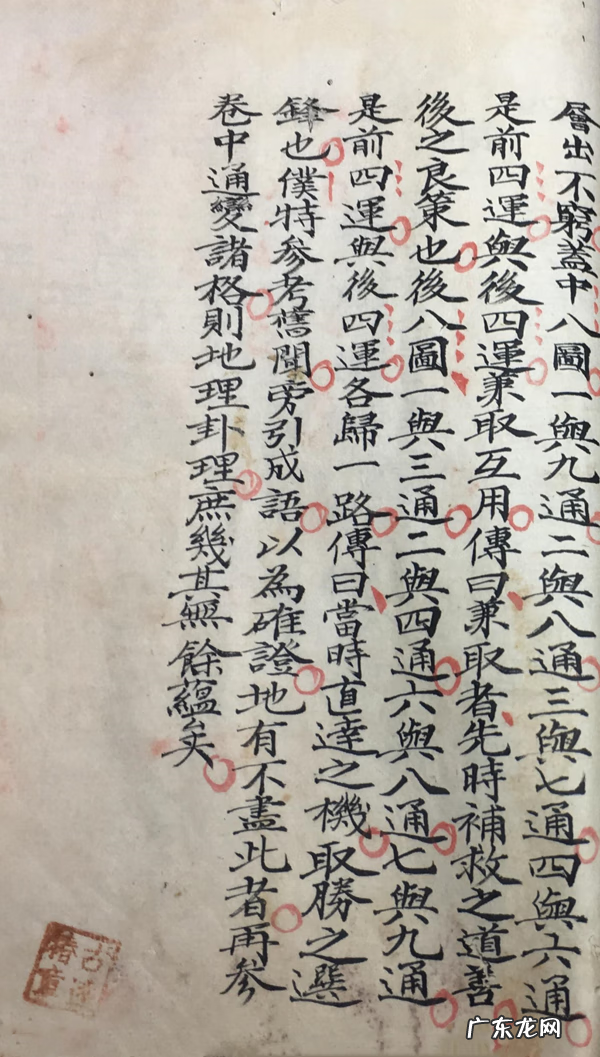 層出不窮蓋中八圖一與九通二與八通三與七通四與六通
是前四運與後四運兼取互用傳曰兼取者先時補救之道善
後之良策也後八圖一與三通二與四通六與八通七與九通
是前四運與後四運各歸一路傳曰當時直達之機取勝之選
鋒也僕特參考舊聞旁引成語以為確證地有不盡此者再參
卷中通變諸格則地理卦理庶幾其無餘蘊矣
广东龙网